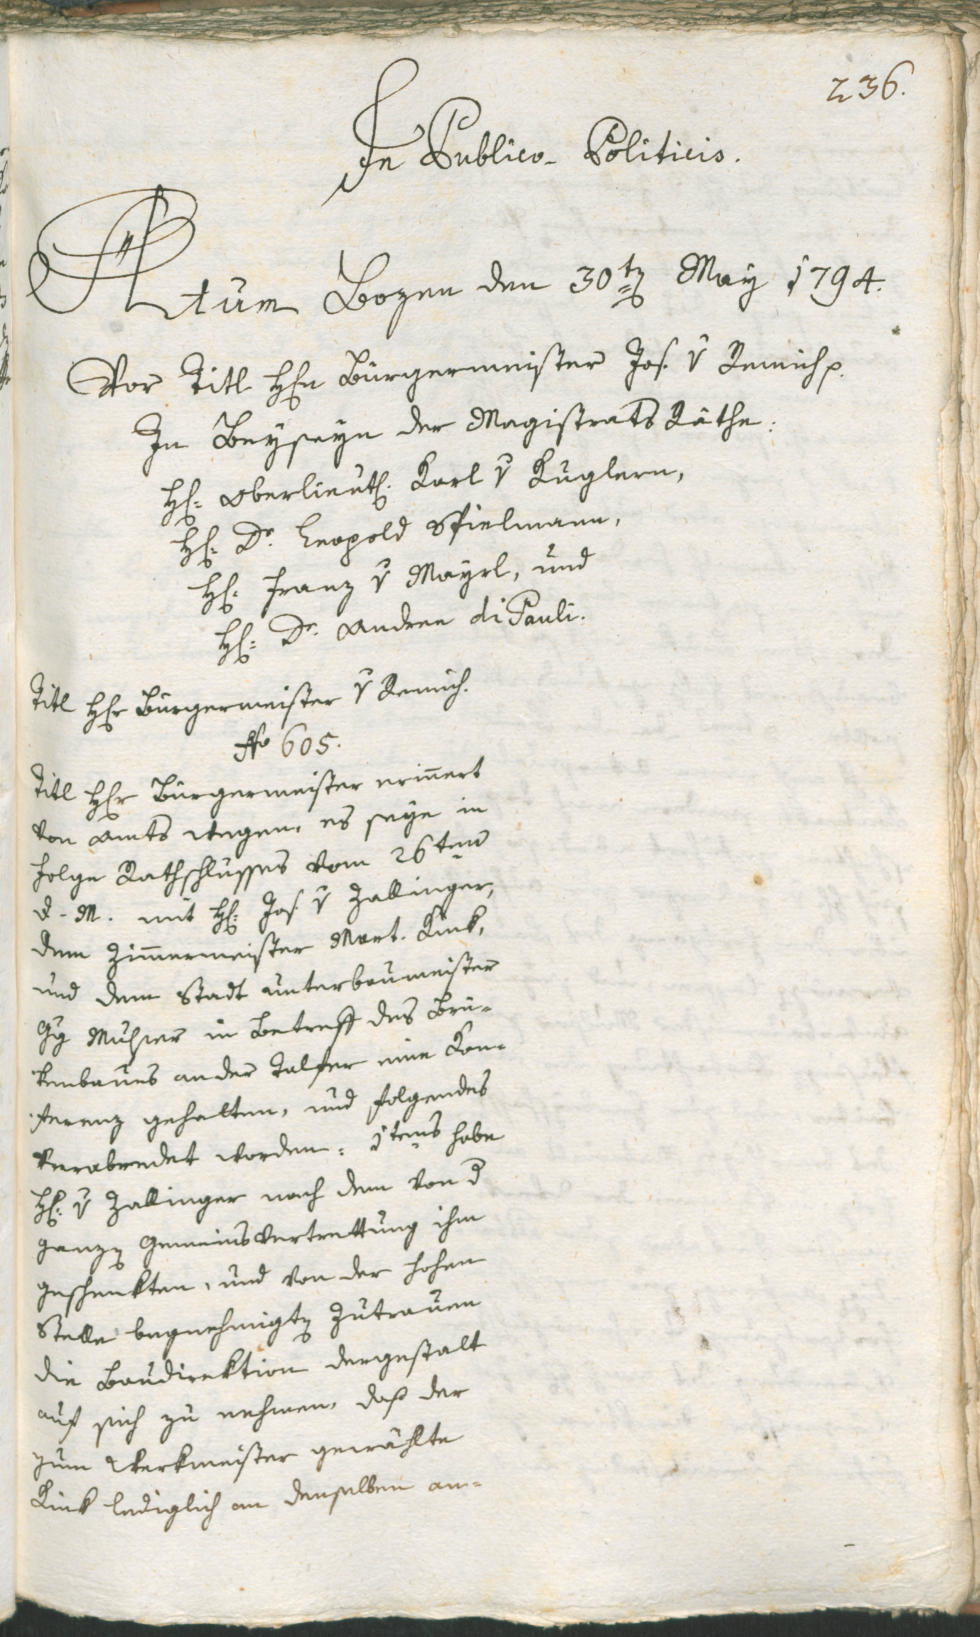 236.
In Publico-Politicis.
Actum Bozen den 30tn May 1794.
Vor Titl Hrn Burgermeister Jos. v Remich p.
In Beyseyn der Magistrats Räthe:
Hr. Oberlieut. Karl v Kuglern,
Hr. Dr. Leopold Spielmann,
Hr. Franz v Mayrl, und
Hr. Dr. Andree di Pauli.
Titl Hr Burgermeister v Remich.
No 605.
Titl Hr Burgermeister erinert
von Amts wegen, es seye in
Folge Rathschlusses vom 26ten
d. M. mit Hr. Jos. v Zallinger,
dem Zimermeister Mart. Kink,
und dem Stadt unterbaumeister
Gg in Betreff des Brü-
kenbaues an der Talfer eine Kon-
ferenz gehalten, und folgendes
verabredet worden: 1tens habe
Hr. v Zallinger nach dem von d
ganzn Gemeinsvertrettung ihm
geschenkten, und von der hohen
Stelle begnehmigtn Zutrauen
die Baudirektion dergestalt
auf sich zu nehmen, daß der
zum Werkmeister gewählte
Kink lediglich an denselben an-